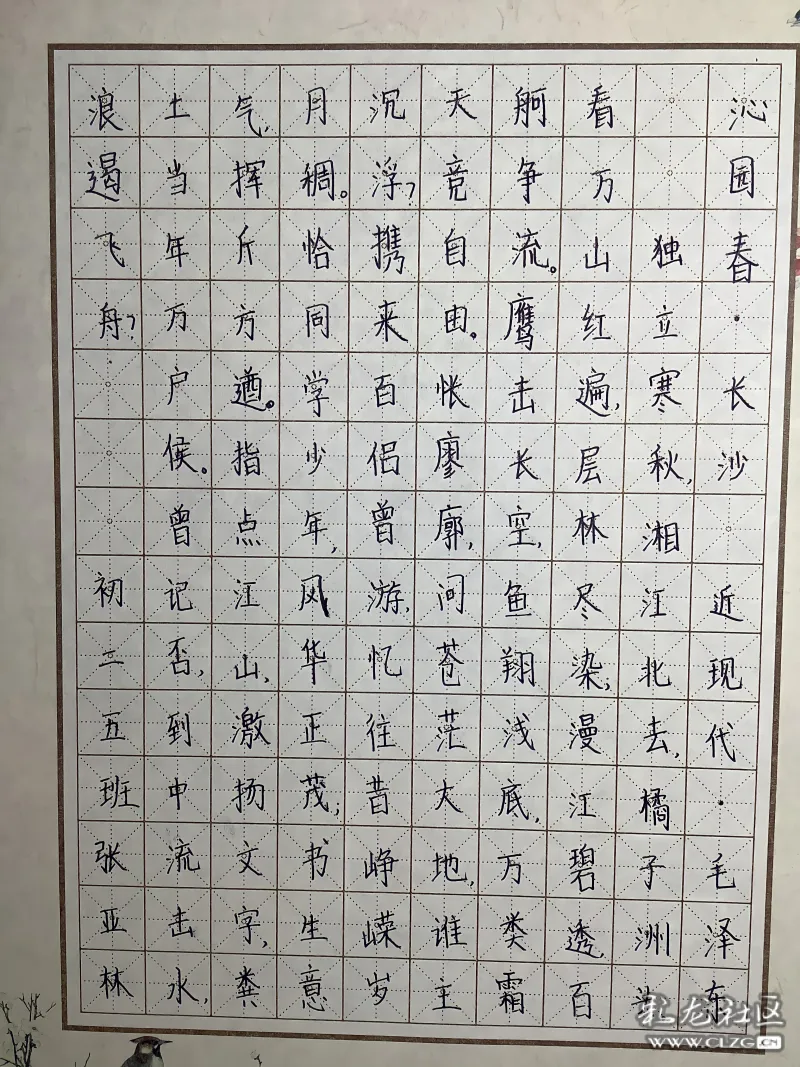 沁园春·长沙 近现代·毛泽东
独立寒秋,湘江北去,橘子洲
看万山红遍,层林尽染,漫江碧透,百
舸争流。鹰击长空,鱼翔浅底,万类霜
天竞自由。怅廖廓,问苍茫大地,谁主
沉浮?携来百侣曾游,忆往昔峥嵘岁
月稠。恰同学少年,风华正茂;书生意
气,挥斤方遒。指点江山,激扬文字,粪
土当年万户侯。曾记否,到中流击水,
浪遏飞舟? 初二五班张亚林
彩龙社区
www.CLZG.CN